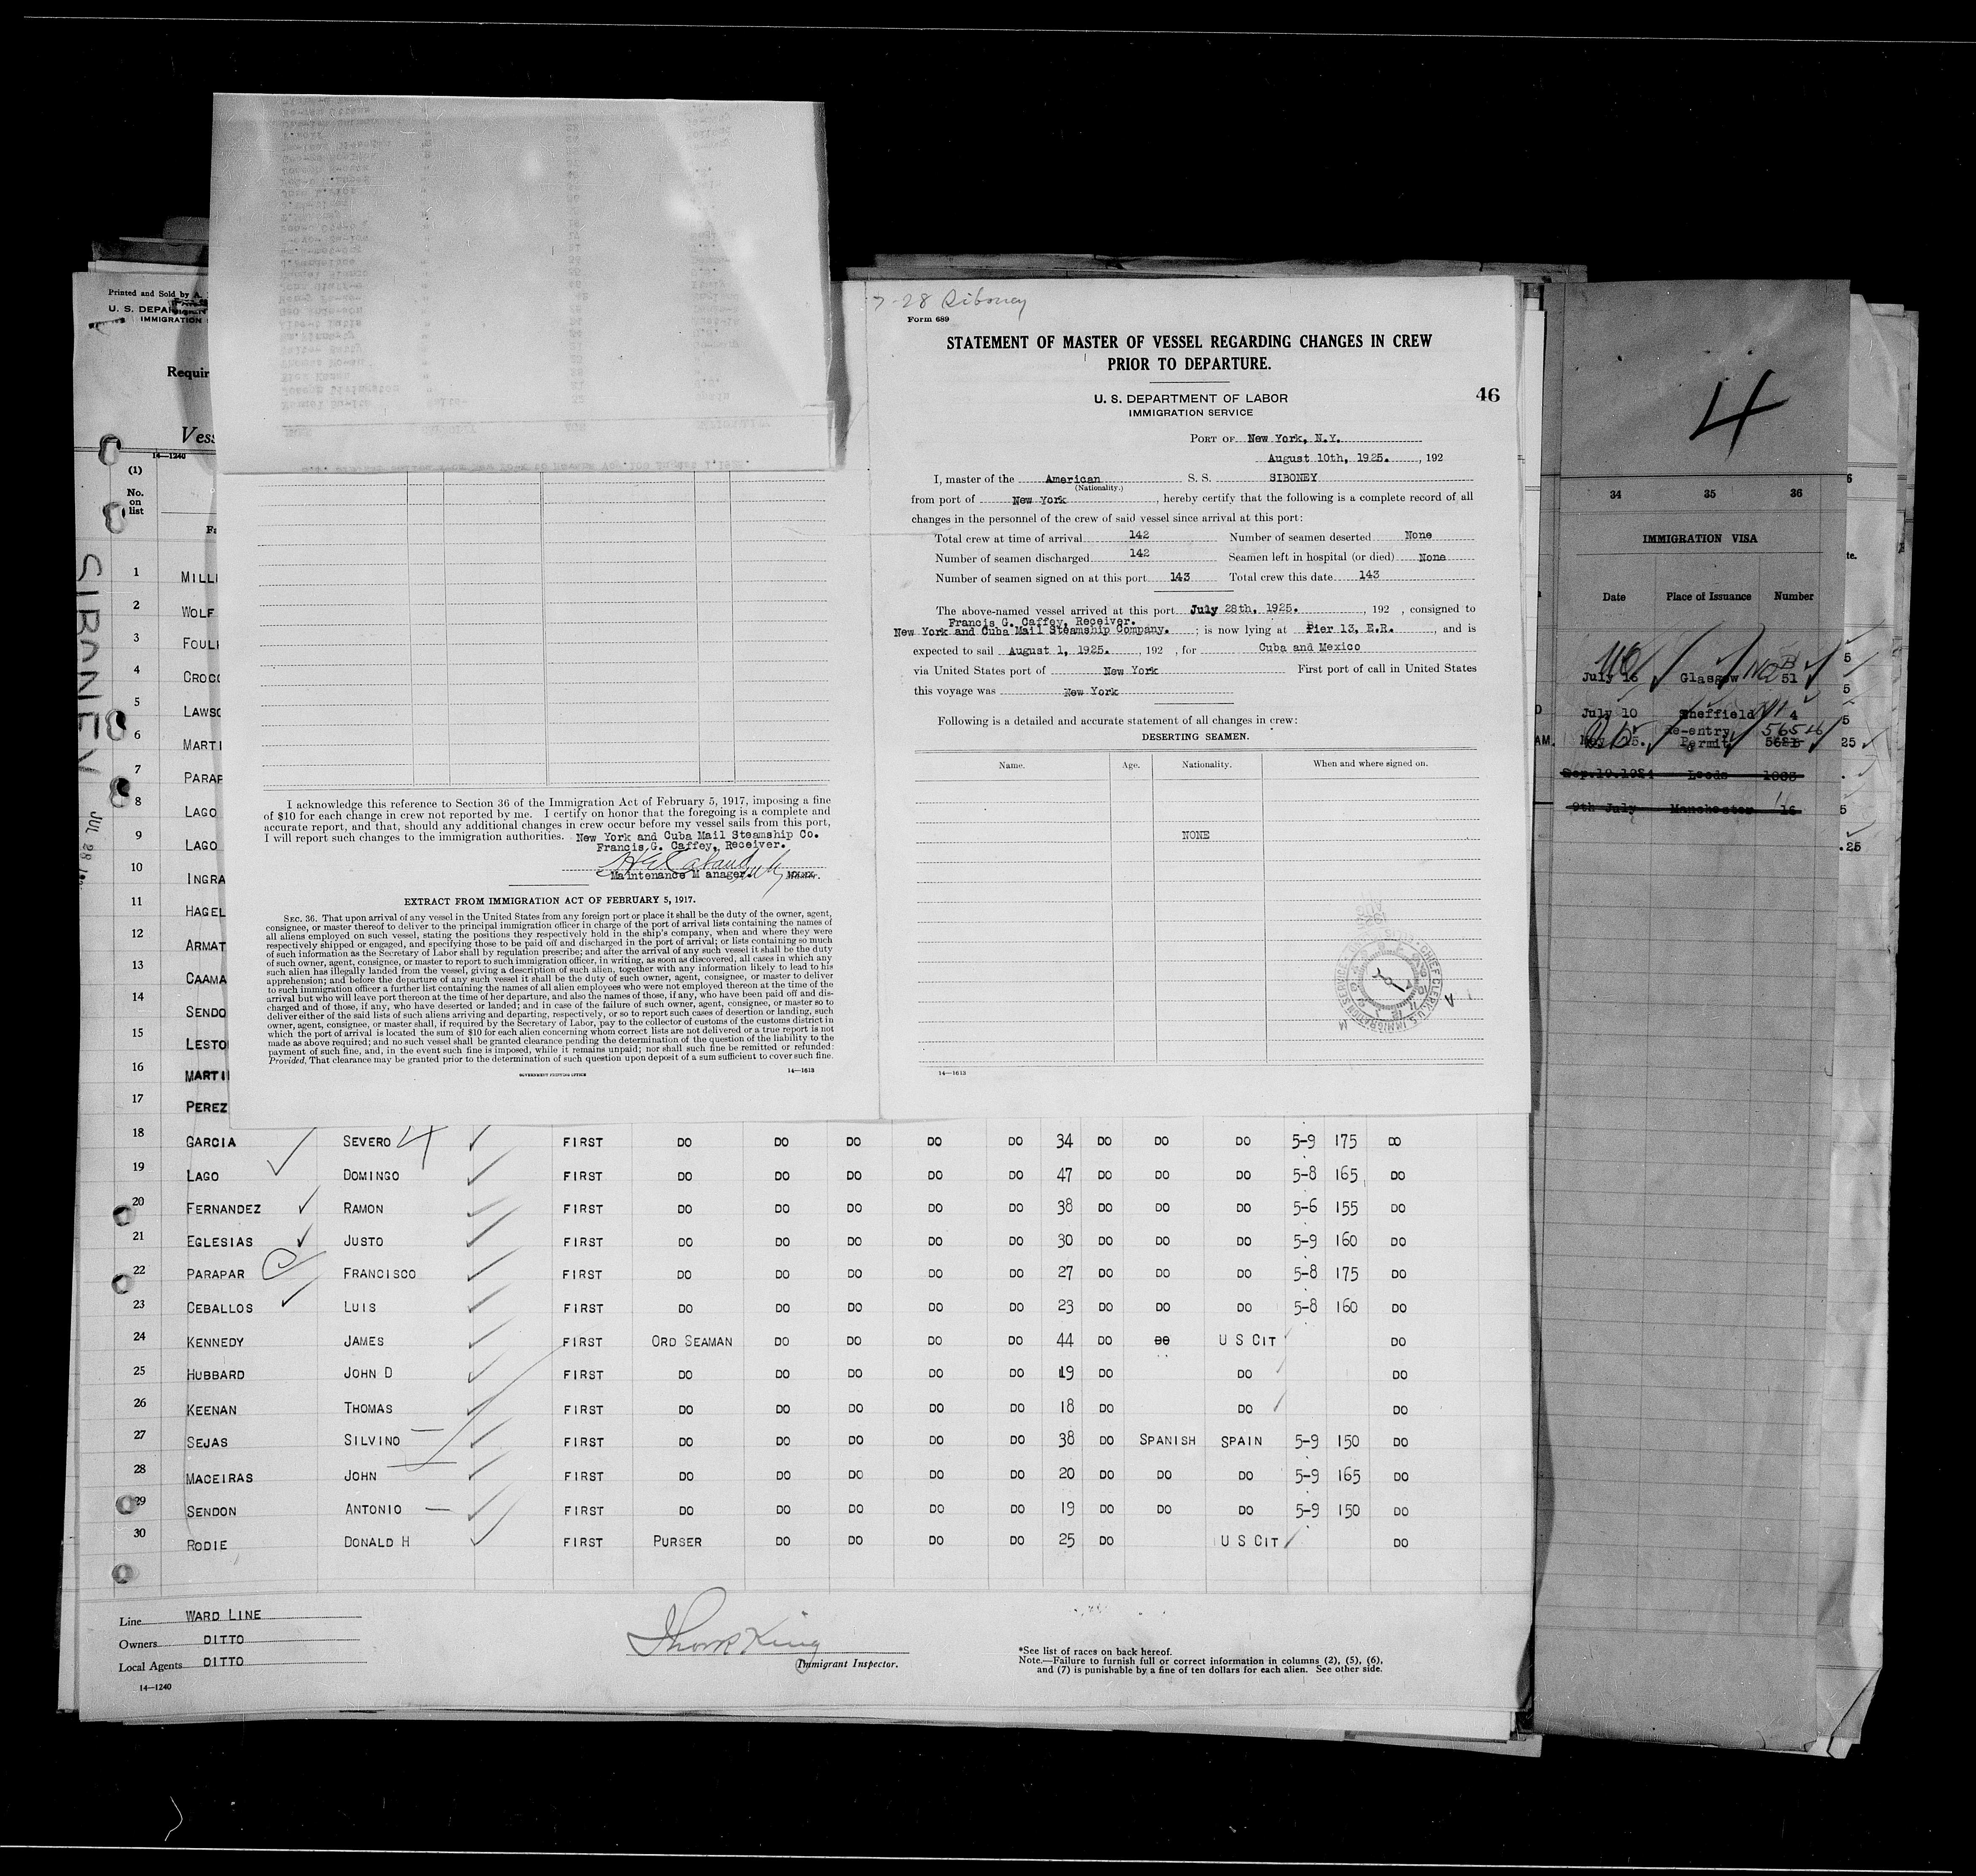 7-28 Siboney
Form 689
STATEMENT OF MASTER OF VESSEL REGARDING CHANGES IN CREW
PRIOR TO DEPARTURE.
U. S. DEPARTMENT OF LABOR
IMMIGRATION SERVICE
46
PORT OF New York, N.Y.
August 10th, 1925. , 192
I, master of the American S. S. SIBONEY
(Nationality.)
from port of New York , hereby certify that the following is a complete record of all
changes in the personnel of the crew of said vessel since arrival at this port:
Total crew at time of arrival 142 Number of seamen deserted None
Number of seamen discharged 142 Seamen left in hospital (or died) None
Number of seamen signed on at this port 143 Total crew this date 143
The above-named vessel arrived at this port July 28th, 1925. , 192 , consigned to
Francis G. Caffey, Receiver.
New York and Cuba Mail Steamship Company. ; is now lying at Pier 13, E.R. , and is
expected to sail August 1, 1925. , 192 , for Cuba and Mexico
via United States port of New York First port of call in United States
this voyage was New York
Following is a detailed and accurate statement of all changes in crew:
DESERTING SEAMEN.
Name. Age. Nationality. When and where signed on.
NONE
14—1613
I acknowledge this reference to Section 36 of the Immigration Act of February 5, 1917, imposing a fine
of $10 for each change in crew not reported by me. I certify on honor that the foregoing is a complete and
accurate report, and that, should any additional changes in crew occur before my vessel sails from this port,
I will report such changes to the immigration authorities. New York and Cuba Mail Steamship Co.
Francis G. Caffey, Receiver.
Maintenance Manager.
EXTRACT FROM IMMIGRATION ACT OF FEBRUARY 5, 1917.
SEC. 36. That upon arrival of any vessel in the United States from any foreign port or place it shall be the duty of the owner, agent,
consignee, or master thereof to deliver to the principal immigration officer in charge of the port of arrival lists containing the names of
all aliens employed on such vessel, stating the positions they respectively hold in the ship's company, when and where they were
respectively shipped or engaged, and specifying those to be paid off and discharged in the port of arrival; or lists containing so much
of such information as the Secretary of Labor shall by regulation prescribe; and after the arrival of any such vessel it shall be the duty
of such owner, agent, consignee, or master to report to such immigration officer, in writing, as soon as discovered, all cases in which any
such alien has illegally landed from the vessel, giving a description of such alien, together with any information likely to lead to his
apprehension; and before the departure of any such vessel it shall be the duty of such owner, agent, consignee, or master to deliver
to such immigration officer a further list containing the names of all alien employees who were not employed thereon at the time of the
arrival but who will leave port thereon at the time of her departure, and also the names of those, if any, who have been paid off and dis-
charged and of those, if any, who have deserted or landed; and in case of the failure of such owner, agent, consignee, or master so to
deliver either of the said lists of such aliens arriving and departing, respectively, or so to report such cases of desertion or landing, such
owner, agent, consignee, or master shall, if required by the Secretary of Labor, pay to the collector of customs of the customs district in
which the port of arrival is located the sum of $10 for each alien concerning whom correct lists are not delivered or a true report is not
made as above required; and no such vessel shall be granted clearance pending the determination of the question of the liability to the
payment of such fine, and, in the event such fine is imposed, while it remains unpaid; nor shall such fine be remitted or refunded:
Provided, That clearance may be granted prior to the determination of such question upon deposit of a sum sufficient to cover such fine.
GOVERNMENT PRINTING OFFICE 14—1613
Printed and Sold by A.
U. S. DEPA
IMMIGRATION
Requir
Vess
14—1240
(1)
No.
on
list
SIBONEY JUL 28
1 MILLI
2 WOLF
3 FOUL
4 CROC
5 LAWSO
6 MARTI
7 PARAP
8 LAGO
9 LAGO
10 INGRA
11 HAGEL
12 ARMAT
13 CAAMA
14 SENDO
15 LESTO
16 MARTI
17 PEREZ
18 GARCIA SEVERO FIRST DO DO DO DO DO 34 DO DO DO 5-9 175 DO
19 LAGO DOMINGO FIRST DO DO DO DO DO 47 DO DO DO 5-8 165 DO
20 FERNANDEZ RAMON FIRST DO DO DO DO DO 38 DO DO DO 5-6 155 DO
21 EGLESIAS JUSTO FIRST DO DO DO DO DO 30 DO DO DO 5-9 160 DO
22 PARAPAR FRANCISCO FIRST DO DO DO DO DO 27 DO DO DO 5-8 175 DO
23 CEBALLOS LUIS FIRST DO DO DO DO DO 23 DO DO DO 5-8 160 DO
24 KENNEDY JAMES FIRST ORD SEAMAN DO DO DO DO 44 DO DO U S CIT DO
25 HUBBARD JOHN D FIRST DO DO DO DO DO 19 DO DO DO
26 KEENAN THOMAS FIRST DO DO DO DO DO 18 DO DO DO
27 SEJAS SILVINO FIRST DO DO DO DO DO 38 DO SPANISH SPAIN 5-9 150 DO
28 MACEIRAS JOHN FIRST DO DO DO DO DO 20 DO DO DO 5-9 165 DO
29 SENDON ANTONIO FIRST DO DO DO DO DO 19 DO DO DO 5-9 150 DO
30 RODIE DONALD H FIRST PURSER DO DO DO DO 25 DO U S CIT DO
Line WARD LINE
Owners DITTO
Local Agents DITTO
14—1240
Immigrant Inspector.
*See list of races on back hereof.
Note.—Failure to furnish full or correct information in columns (2), (5), (6),
and (7) is punishable by a fine of ten dollars for each alien. See other side.
4
34 35 36
IMMIGRATION VISA
Date Place of Issuance Number
July 16 Glasgow 51
July 10 Sheffield 4
Re-entry
May 15. Permit 56546
Sep.19.1924 Leeds 1083
9th July Manchester 16